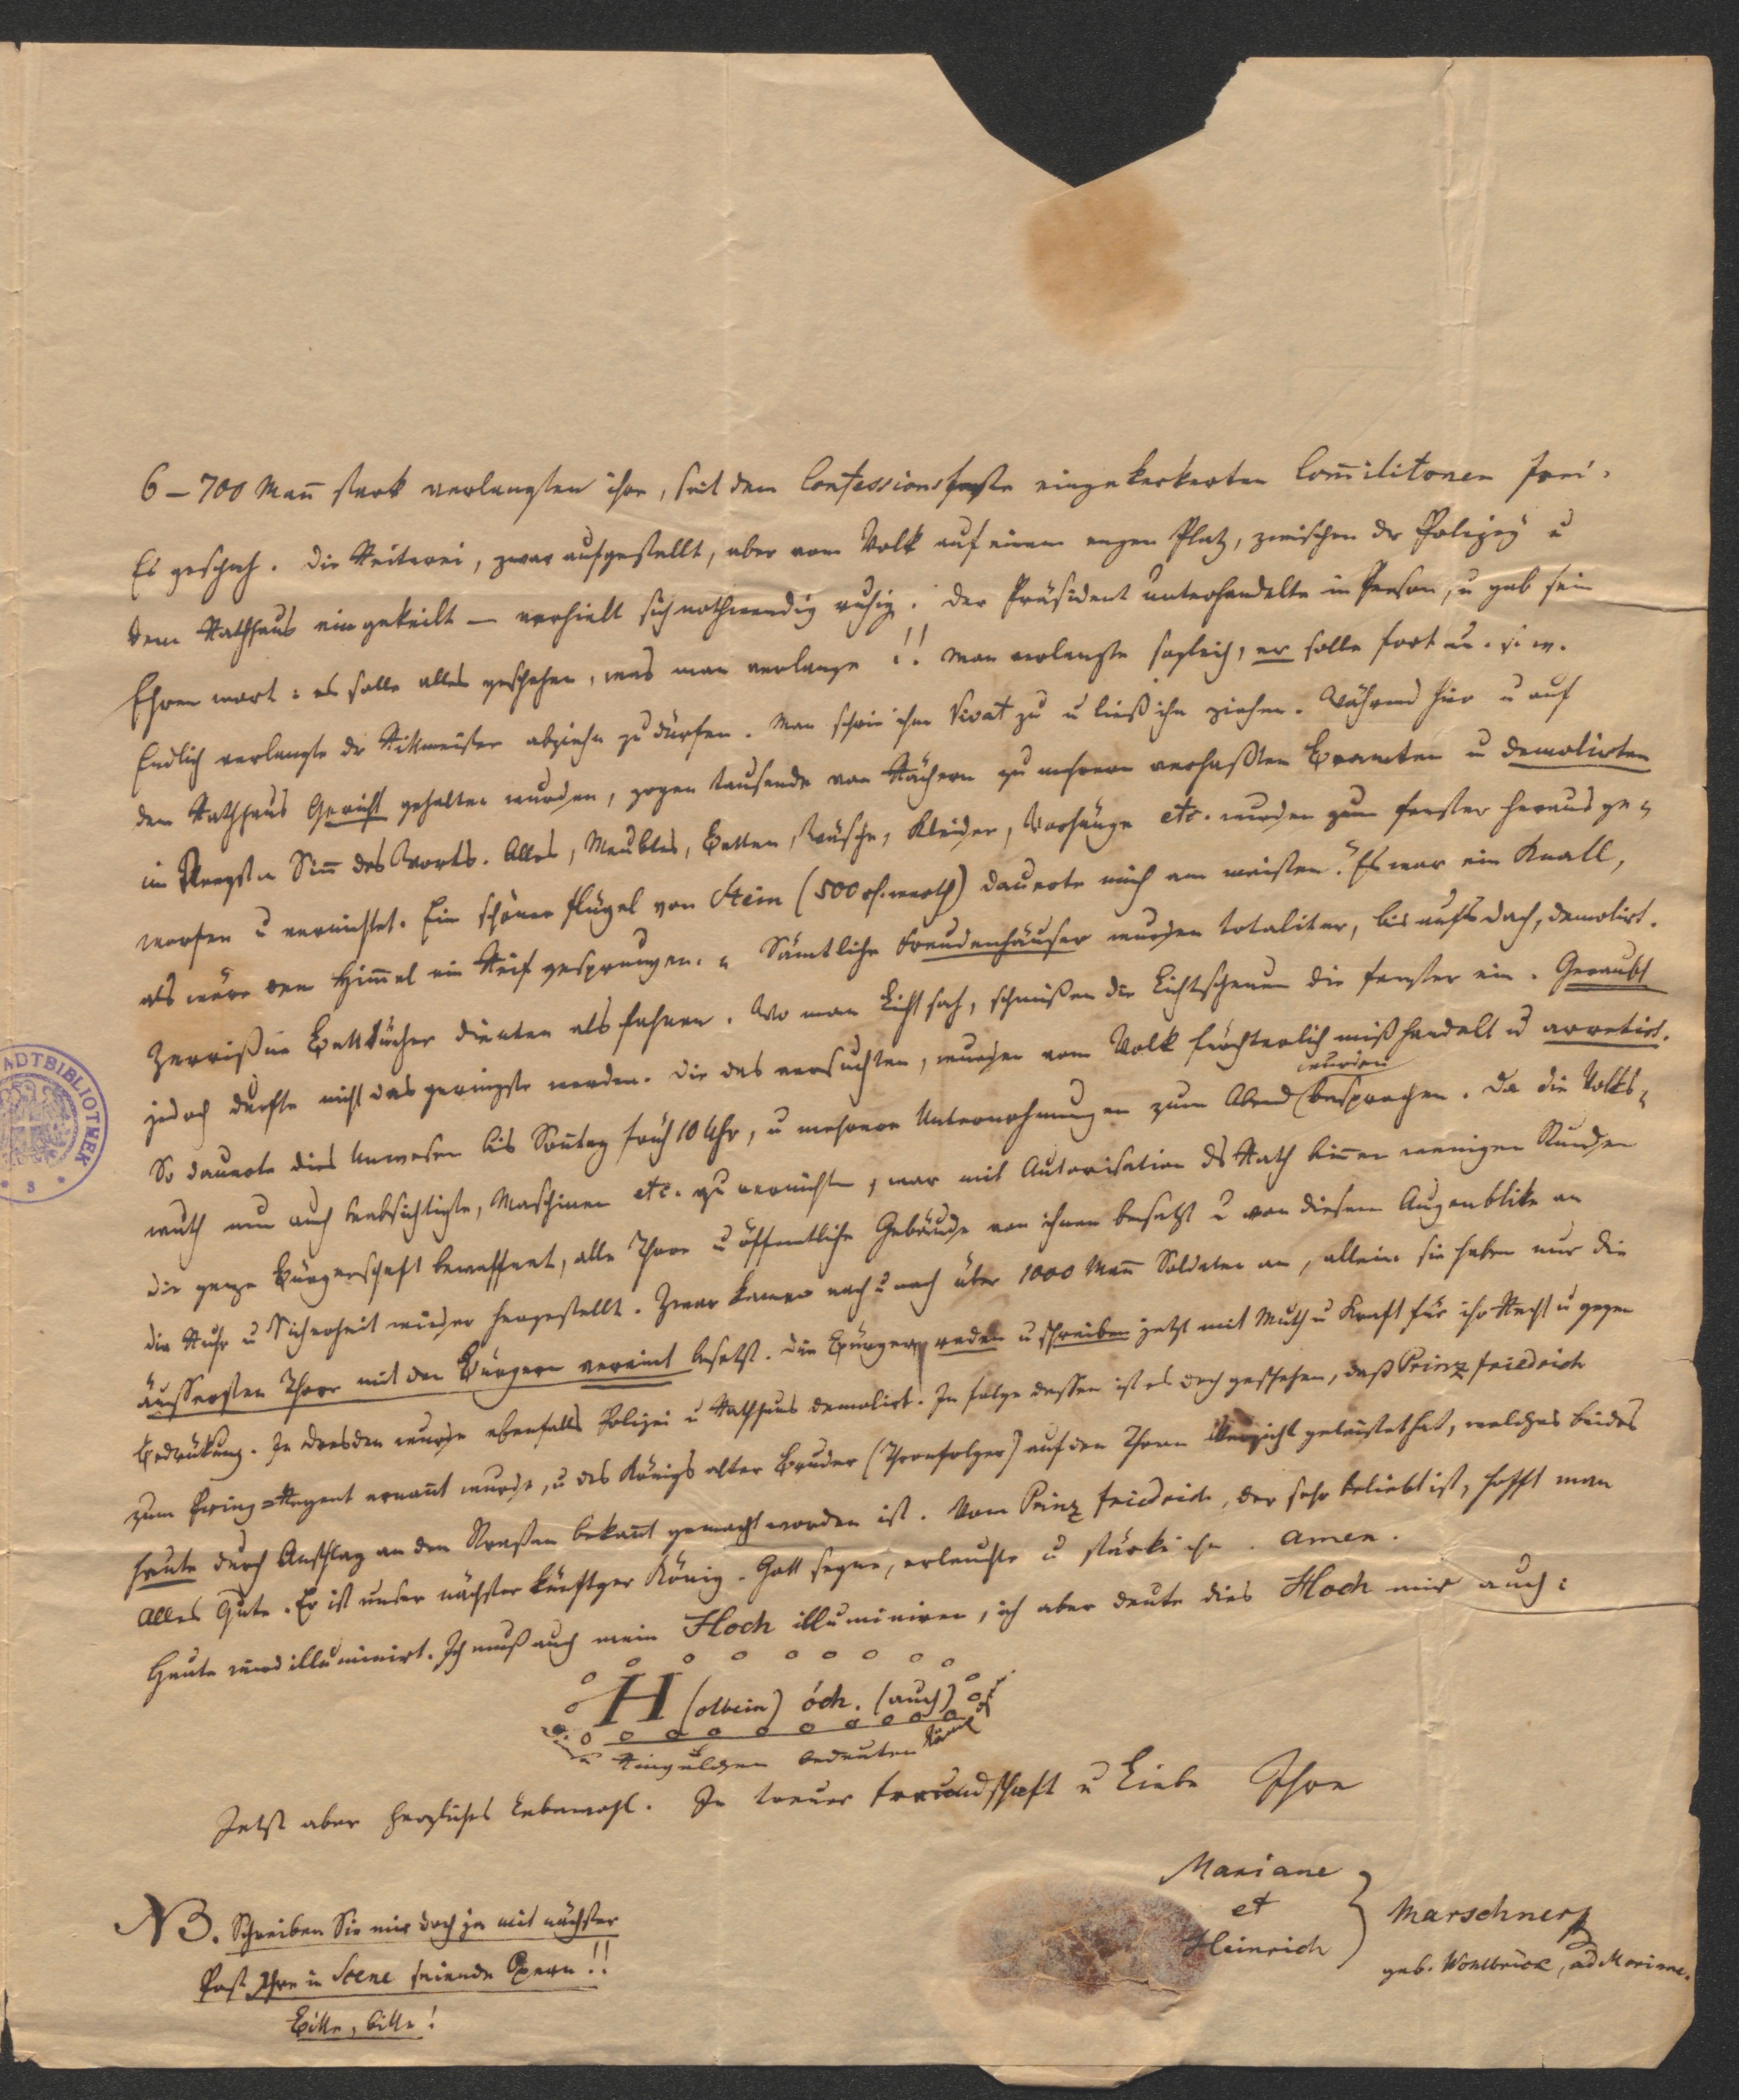 6–700 Mañ stark verlangten ihre, seit dem Confessionsfeste eingekerkerten Com̄ilitonen frei.
Es geschah. Die Reiterei, zwar aufgestellt, aber vom Volk auf einem engen Platz, zwischen der Polizey u
dem Rathhaus eingekeilt — verhielt sich nothwendig ruhig. Der Präsident unterhandelte in Person, u gab sein
Ehrenwort: es solle alles geschehen, was man verlange!! Man verlangte sogleich, er solle fort u. s. w.
Endlich verlangte der Rittmeister abziehn zu dürfen. Man schrie ihm Vivat zu u ließ ihn ziehen. Während hier u auf
dem Rathhaus Gericht gehalten wurden, zogen tausende von Rächern zu mehrern verhaßten Beamten u demolirten
im Sinn̄ des Worts. Alles, Meubles, Betten, Wäsche, Kleider, Vorhänge etc. wurden zum Fenster heraus ge-
worfen u vernichtet. Ein schöner Flügel von Stein (500 rh. werth) dauerte mich am meisten. „Es war ein Knall,
als wäre vom Him̄el ein Reif gesprungen.“ Sämtliche Freudenhäuser wurden totaliter, bis aufs Dach, demolirt.
Zerrißne Betttücher dienten als Fahnen. Wo man Licht sah, schmißen die Lichtscheuen die Fenster ein. Geraubt
jedoch durfte nicht das geringste werden. Die das versuchten, wurden vom Volk fürchterlich mißhandelt u arretirt.
So dauerte dies Unwesen bis Soñtag früh 10 Uhr, u mehrere Unternehmungen zum Abend wurden besprochen. Da die Volks-
wuth nun auch beabsichtigte, Maschinen etc. zu vernichten, war mit Autorisation des Rath biñen wenigen Stunden
die ganze Bürgerschaft bewaffnet, alle Thore u öffentliche Gebäude von ihnen besetzt u von diesem Augenblike an
die Ruhe u Sicherheit wieder hergestellt. Zwar kamen nach u nach über 1000 Mañ Soldaten an, allein sie haben nur die
äussersten Thore mit den Bürgern vereint besetzt. Die Bürger reden u schreiben jetzt mit Muth u Kraft für ihr Recht u gegen
Bedrükung. In Dresden wurde ebenfalls Polizei u Rathhaus demolirt. In folge dessen ist es doch geschehen, daß Prinz Friedrich
zum Prinz-Regent ernañt wurde, u des Königs alter Bruder (Thronfolger) auf den Thron Verzicht geleistet hat, welches beides
heute durch Anschlag an den Straßen bekañt gemacht worden ist. Vom Prinz Friedrich, der sehr beliebt ist, hofft man
Alles Gute. Er ist unser nächster künftger König. Gott segne, erleuchte u stärke ihn. Amen.
Heute wird illuminirt. Ich muß auch mein Hoch illuminiren, ich aber deute dies Hoch mir auch:
H (olbein) óch. (auch)
Kingelchen bedeuten
Jetzt aber herzliches Lebewohl. In treuer Freundschaft u Liebe Ihre
Mariane
et
Heinrich
Marschner
geb. Wohlbrück, ad Mariane.
NB. Schreiben Sie mir doch ja mit nächster
Post Ihre in Scene seiende Opern!!
Bitte, bitte!
ADTBIBLIOTHEK
* 3 *